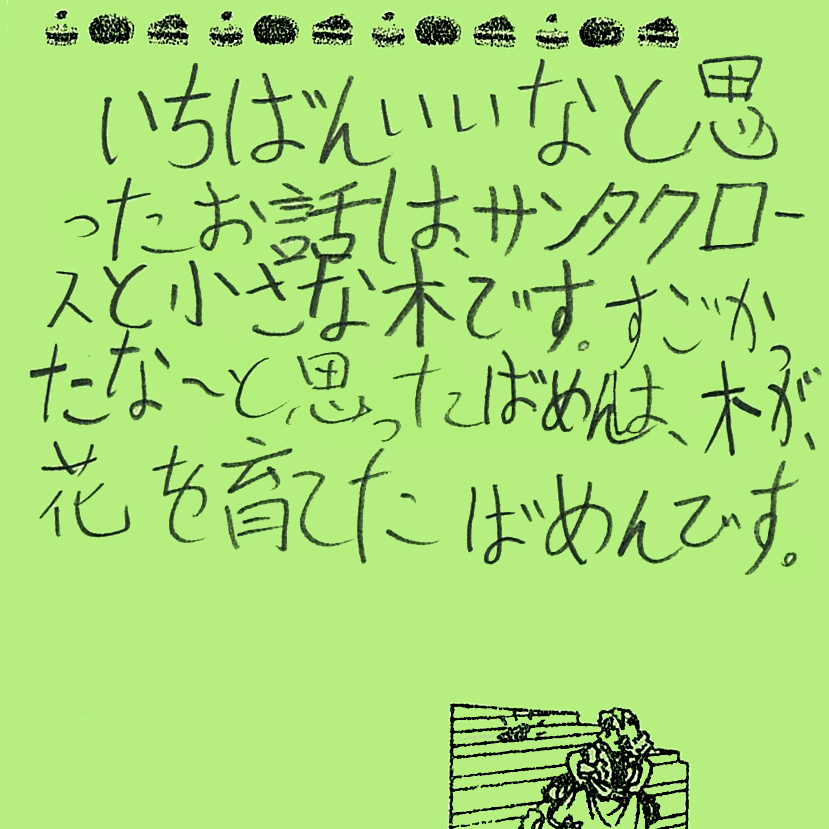 いちばんいいなと思
ったお話は、サンタクロー
スと小さな木です。すごかっ
たな～と思ったばめんは、木が、
花を育てたばめんです。